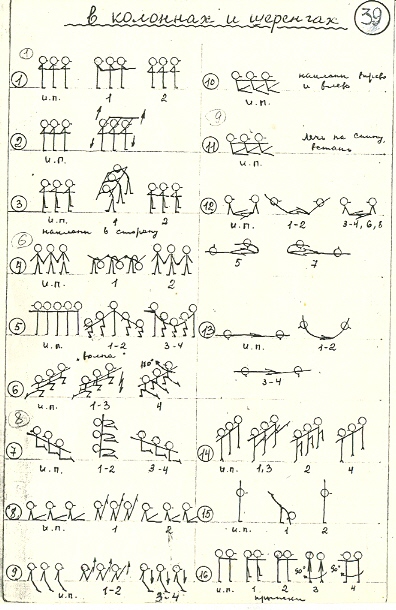 в колоннах и шеренгах
39
1
1
и.п.
1
2
2
и.п.
3
и.п.
1
2
наклоны в сторону
6
4
и.п.
1
2
5
и.п.
1-2
3-4
"волна"
6
и.п.
1-3
110°
4
8
7
и.п.
1-2
3-4
8
и.п.
1
2
9
и.п.
1-2
3-4
10
и.п.
наклоны вправо
и влево
9
11
и.п.
лечь на спину,
встать
12
и.п.
1-2
3-4, 6, 8
5
7
13
и.п.
1-2
3-4
14
и.п.
1,3
2
4
15
и.п.
1
2
16
и.п.
1
2
90°
3
90°
4
прыжки